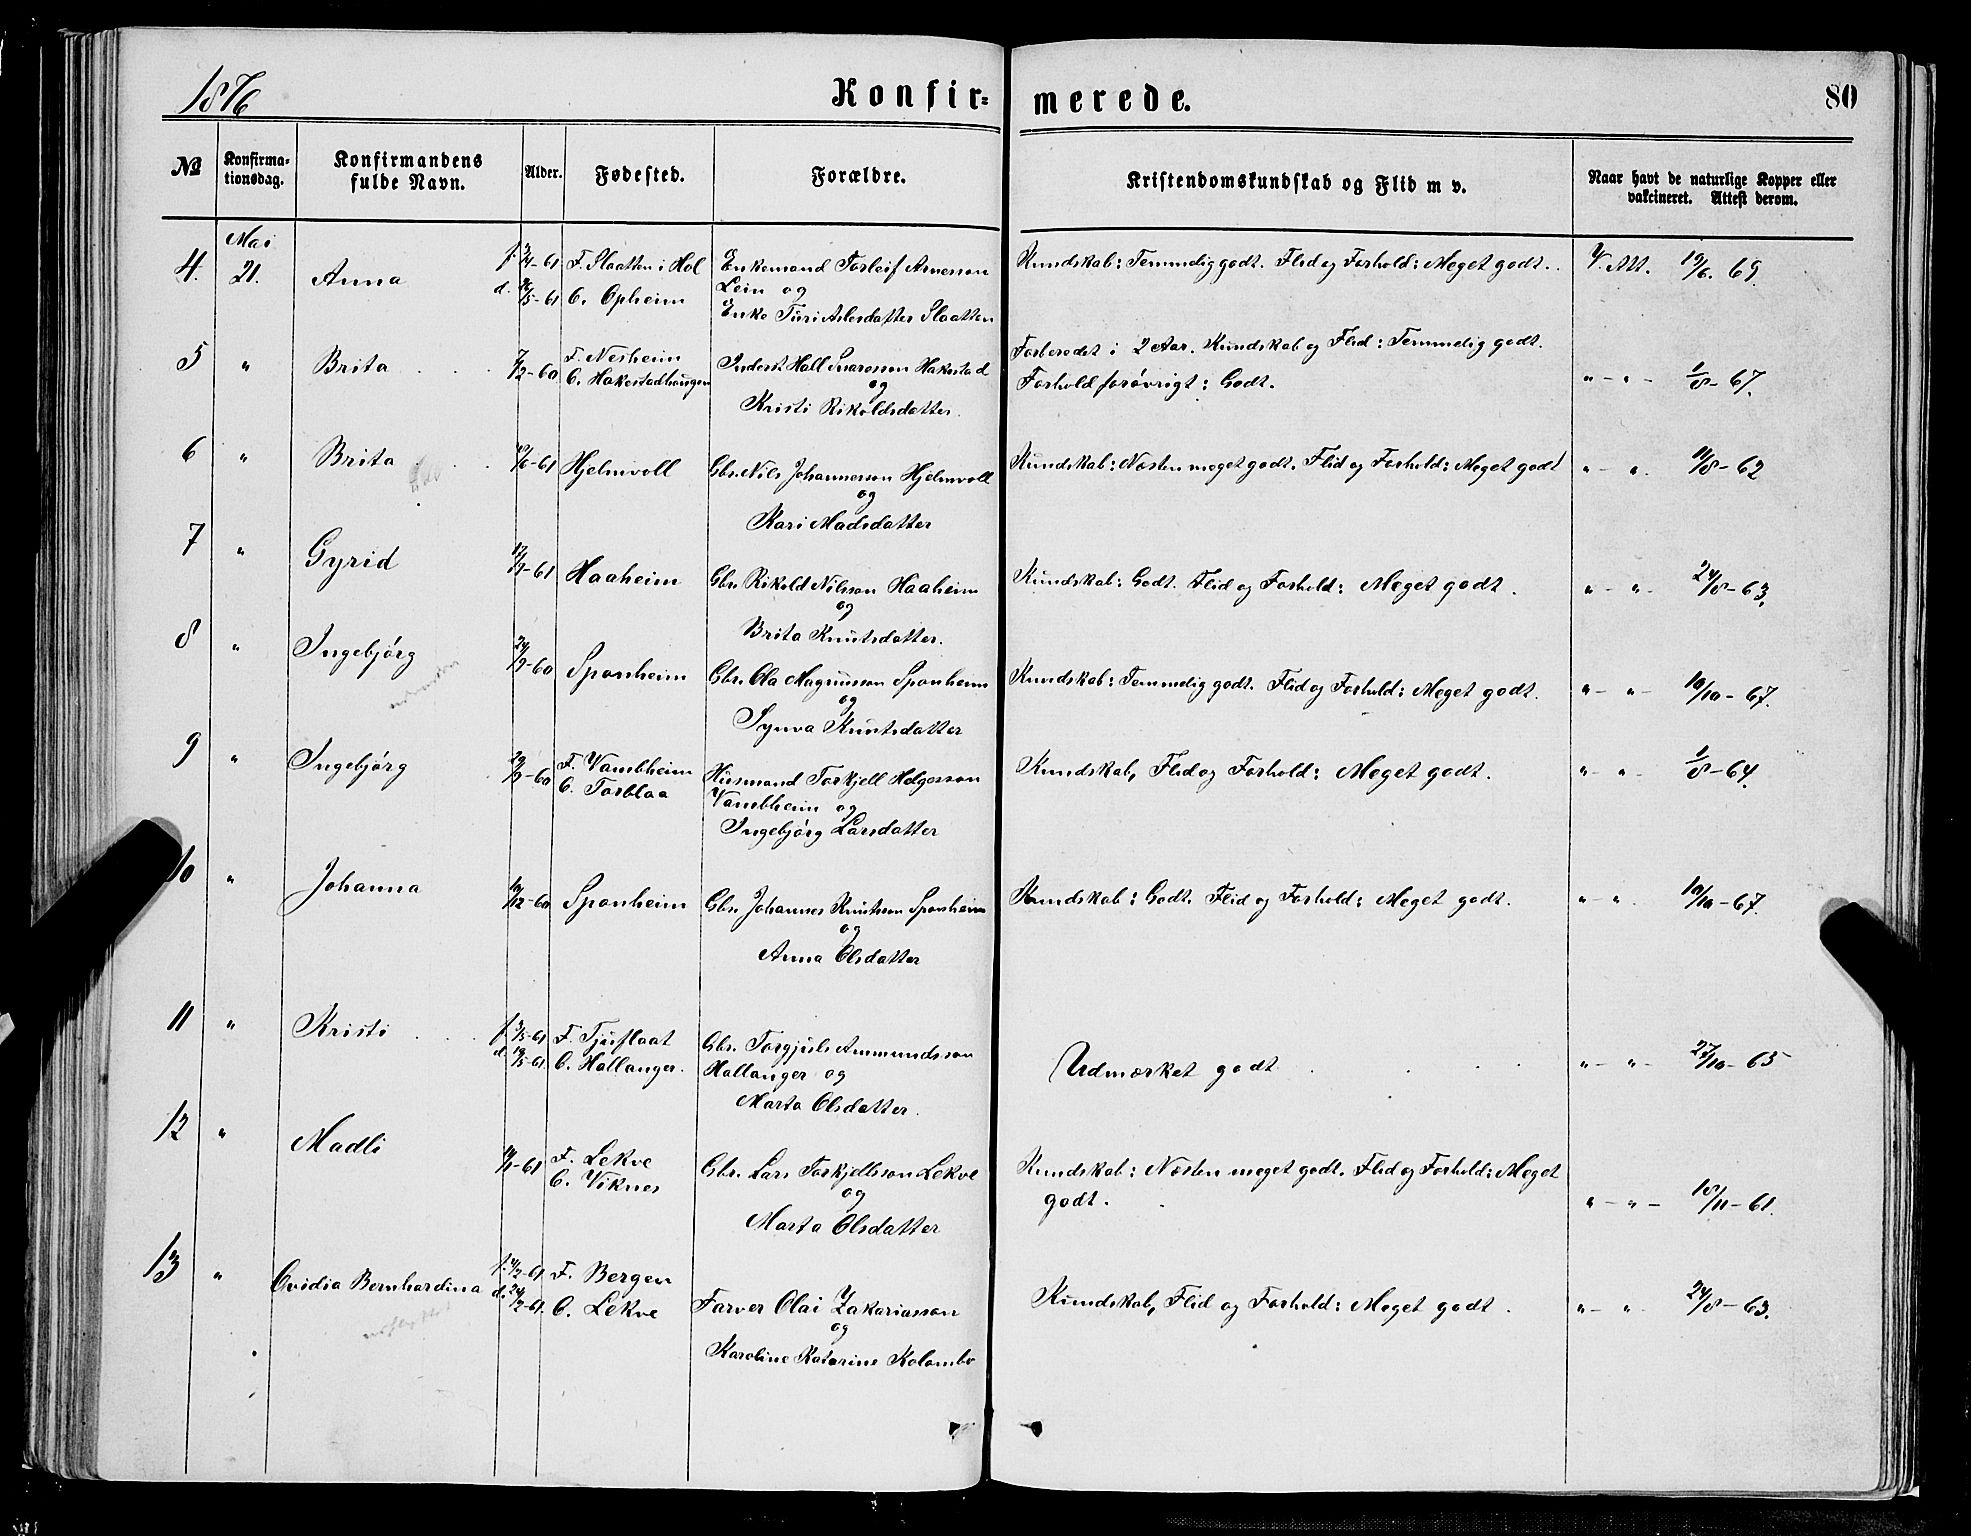 1876
Konfir= merede. 80
No
Konfirma-
tionsdag.
Konfirmandens
fulde Navn.
Alder.
Fødested.
Forældre.
Kristendomskundskab og Flid m v.
Naar havt de naturlige Kopper eller
vakcineret. Attest derom.
Mai
4. 21. Anna f. -61 F. Plaatten i Hol Enkemand Torleif Arnesson Kundskab: Temmelig godt. Flid og Forhold: Meget godt. V. Att. 19/6. 69.
d. /5-61 O. Opheim Lein og
Enke Turi Aslesdatter Plaatten
5 " Brita 7/2-60 F. Nesheim Inderst Hall Svaresson Hakestad Forberedt i 2 Aar. Kundskab og Flid: Temmelig godt.
O. Hakestadhaugen og Forhold forøvrigt: Godt. " - " - 1/8-67.
Kristi Rikoldsdatter.
6 " Brita /6-61 Hjelmvoll Gbr. Nils Johannesson Hjelmvoll Kundskab: Næsten meget godt. Flid og Forhold: Meget godt " - ". 11/8-62
og
Kari Madsdatter
7 " Gyrid -61 Haaheim Gbr. Rikold Nilsson Haaheim Kundskab: Godt. Flid og Forhold: Meget godt. " - " - 24/8-63.
og
Brita Knutsdatter.
8 " Ingebjørg 24/9-60 Sponheim Gbr. Ola Magnusson Sponheim Kundskab: Temmelig godt. Flid og Forhold: Meget godt. " - " - 10/10-67.
og
Synva Knutsdatter
9 " Ingebjørg 29/9-60 F. Vambheim Husmand Torkjell Helgesson Kundskab, Flid og Forhold: Meget godt. " - " - 1/8-64.
O. Torblaa Vambheim og
Ingebjørg Larsdatter
10 " Johanna /12-60 Sponheim Gbr. Johannes Knutsson Sponheim Kundskab: Godt. Flid og Forhold: Meget godt. " - ". 10/10-67.
og
Anna Olsdatter
11 " Kristi f. 3/5-61 F. Tjuflaat Gbr. Torgjuls Ammundsson
d. 19/5-61 O. Hallanger. Hallanger og Udmærket godt " - " - 27/10-65
Marta Olsdatter.
12 " Madli -61 F. Lekve Gbr. Lars Torkjellsson Lekve Kundskab: Næsten meget godt. Flid og Forhold: Meget
O. Viknes og godt. " - " - 18/11-61.
Marta Olsdatter
13 " Ovidia Bernhardina f. /2-61 F. Bergen
d. 24/2-61. O. Lekve Farver Olai Zakariasson Kundskab, Flid og Forhold: Meget godt. " - " - 24/8-63.
og
Karoline Katarine Kolambo